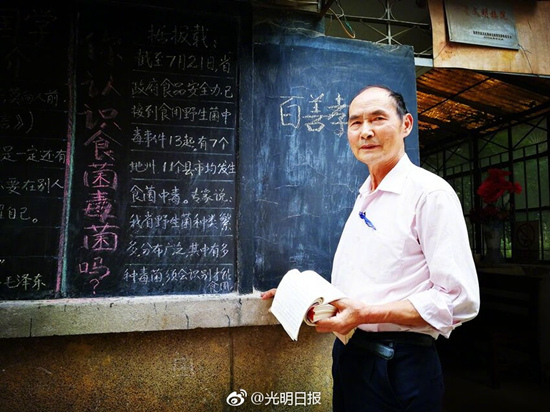 同学
是一定还有
不要在别人
自己。
毛泽东
你认识食菌毒菌吗?
据报载:
截至7月21日,省
政府食品安全办已
接到食用野生菌中
毒事件13起有7个
地州11个县市均发生
食菌中毒。专家说:
我省野生菌种类繁
多,分布广泛,其中有多
种毒菌须会识别才能
食用
百善孝
@光明日报